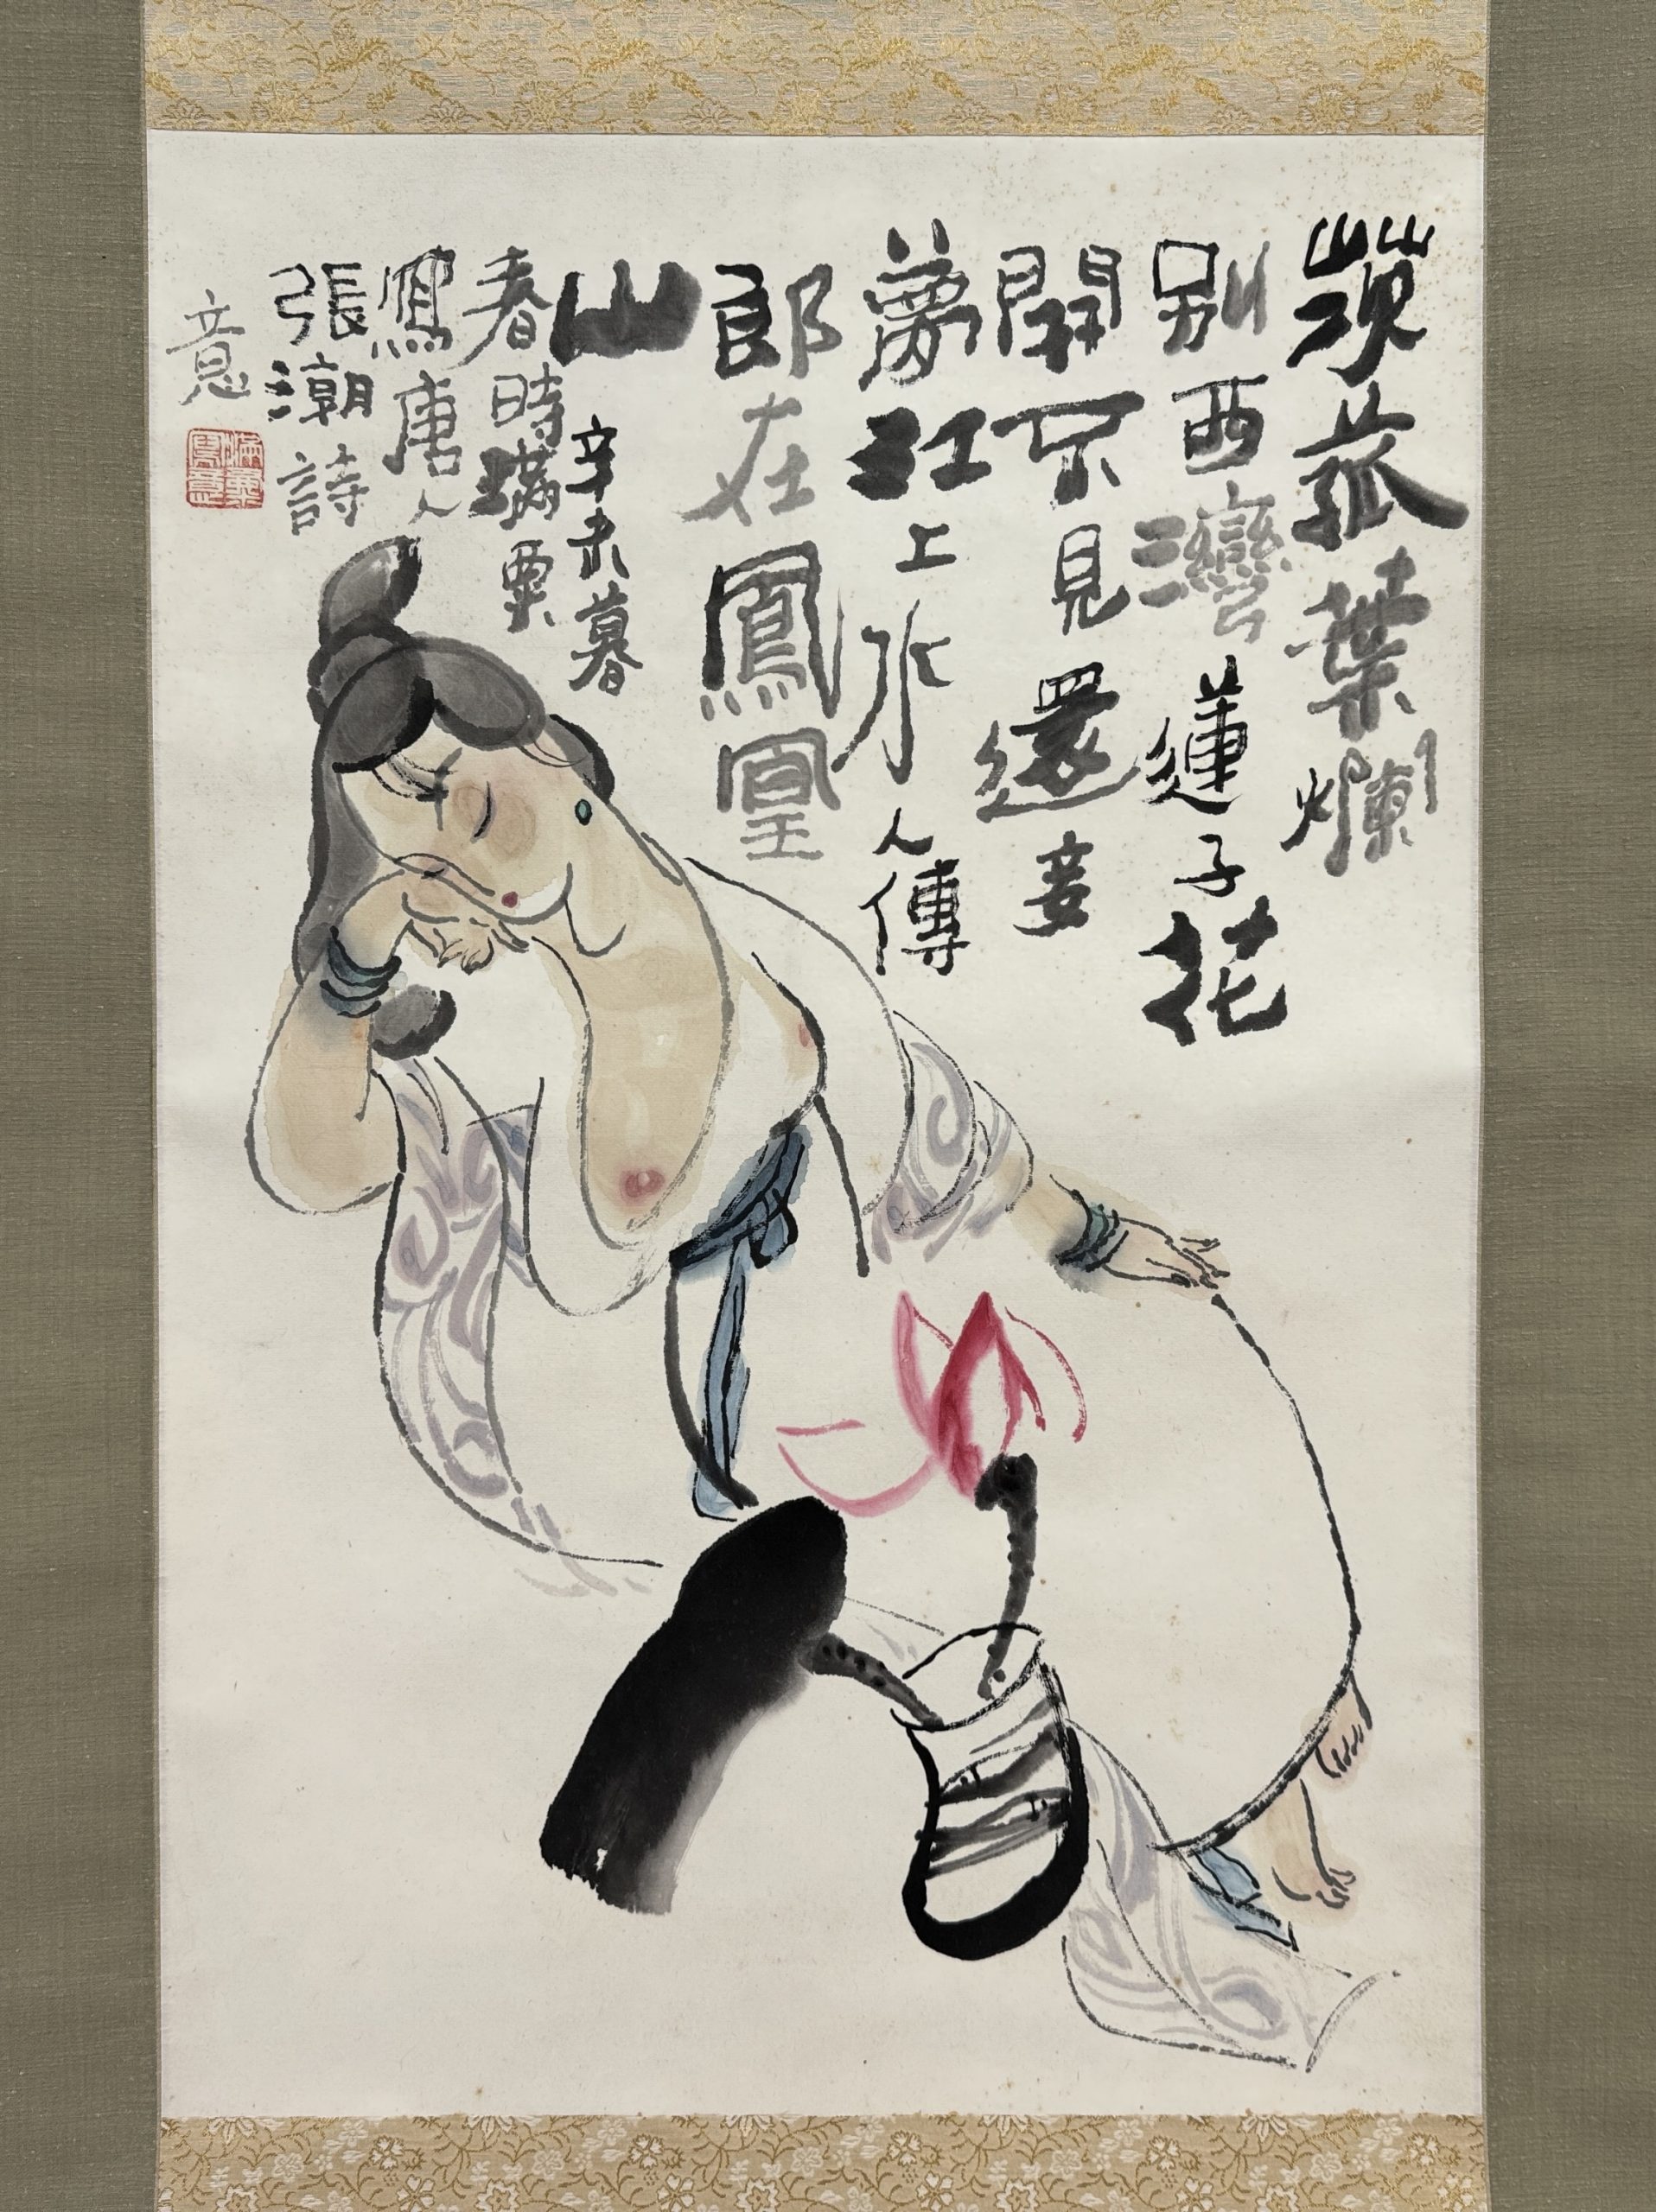 茨菰葉爛
別西灣蓮子花
開不見還妾
夢江上水人傳
郎在鳳凰
山
辛未暮
春時
寫唐人
張潮詩
意